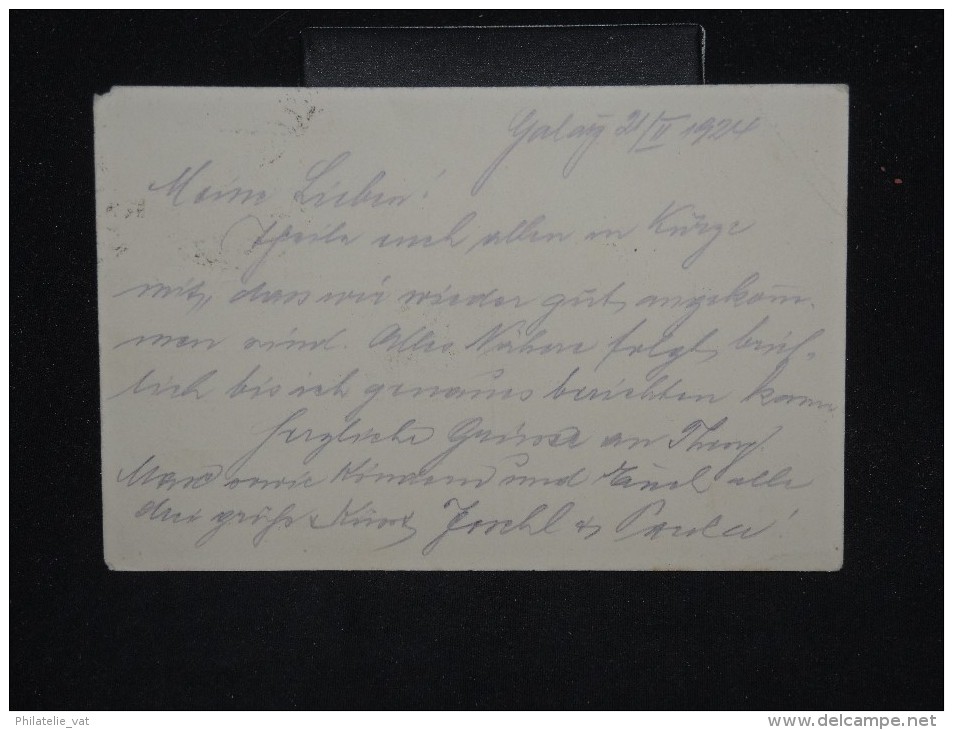 Galatz 21/II 1924
Meine Lieben!
Theile euch allen in Kürze
mit, dass wir wieder gut angekom-
men sind. Alles Nähere folgt brief-
lich bis ich genaues berichten kann
Herzliche Grüsse an
Max sowie Kindern und euch alle
drei grüßt & küsst & Paula!
Philatelie_vat
www.delcampe.net